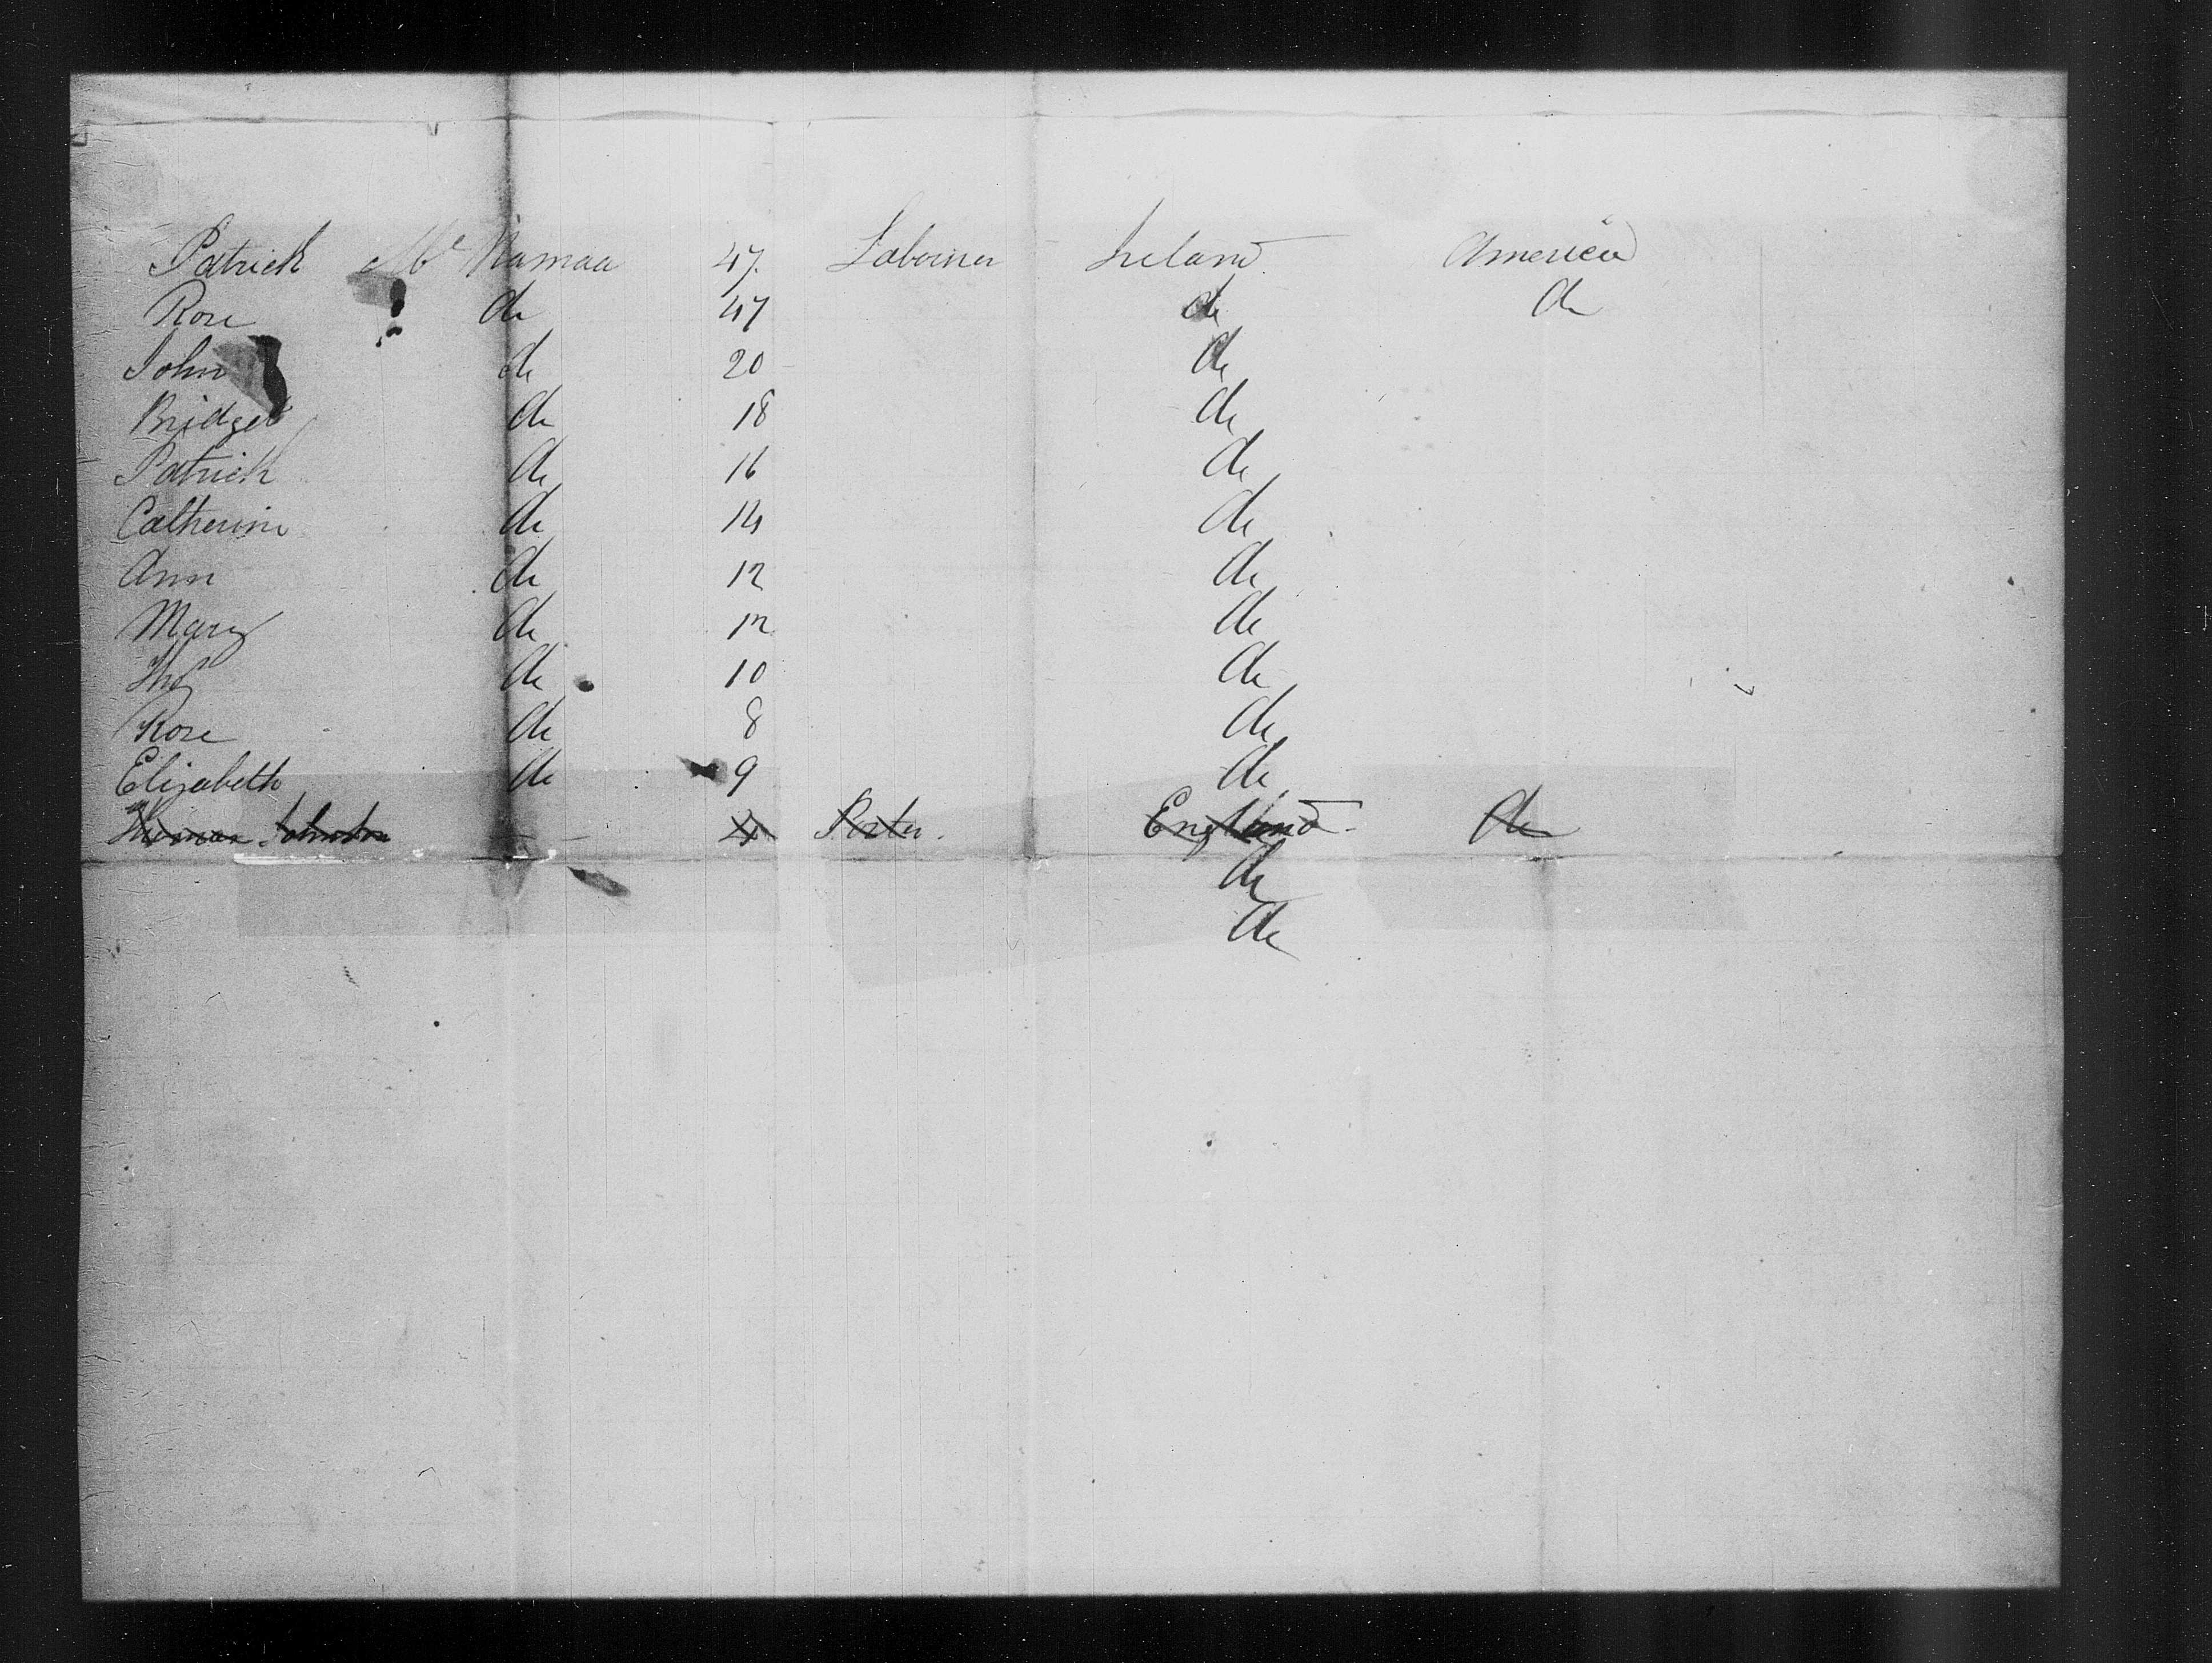 Patrick Mc Namaa 47. Laborer Ireland America
Rose do 47 do do
John do 20 do
Bridget do 18 do
Patrick do 16 do
Catherine do 14 do
Ann do 12 do
Mary do 12 do
Thos do 10 do
Rose do 8 do
Elizabeth do 9 do
Thomas Johnston Porter England do
do
do